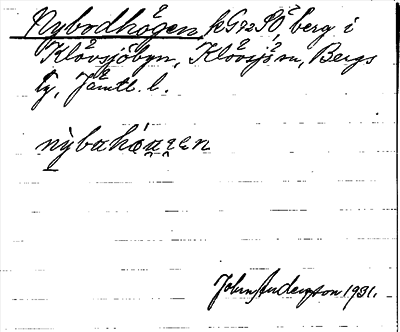 Nybodhögen kG72SÖ, berg i
Klövsjöbyn, Klövsjö sn, Bergs
tg, Jämtl. l.
nỳbɷhǿgen
John Anderzon 1931.